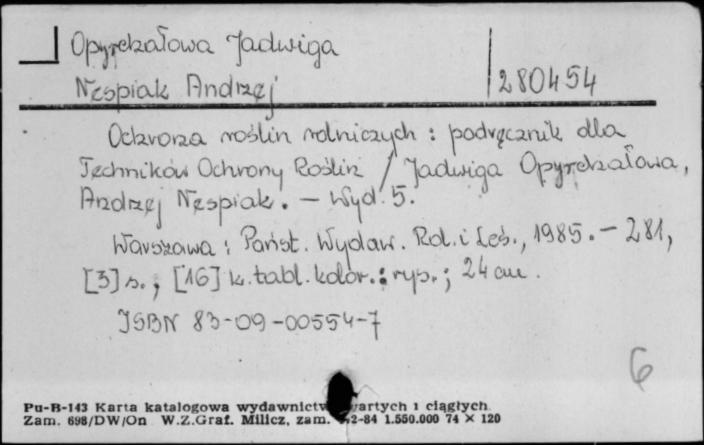 Opyrchałowa Jadwiga
Nespiak Andrzej
280454
Ochrona roślin rolniczych : podręcznik dla
Techników Ochrony Roślin / Jadwiga Opyrchałowa,
Andrzej Nespiak. - Wyd. 5.
Warszawa : Państ. Wydaw. Rol. i Leś., 1985. - 281,
[3] s., [16] k. tabl. kolor. : rys. ; 24 cm.
ISBN 83-09-00554-7
6
Pu-B-143 Karta katalogowa wydawnictw zwartych i ciągłych
Zam. 698/DW/On W.Z.Graf. Milicz, zam. 2-84 1.550.000 74 × 120